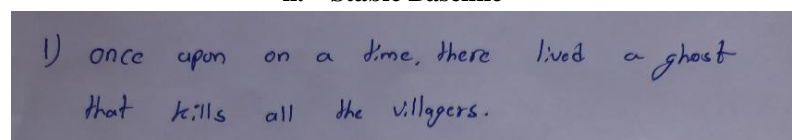 1) once upon on a time, there lived a ghost
that kills all the villagers.